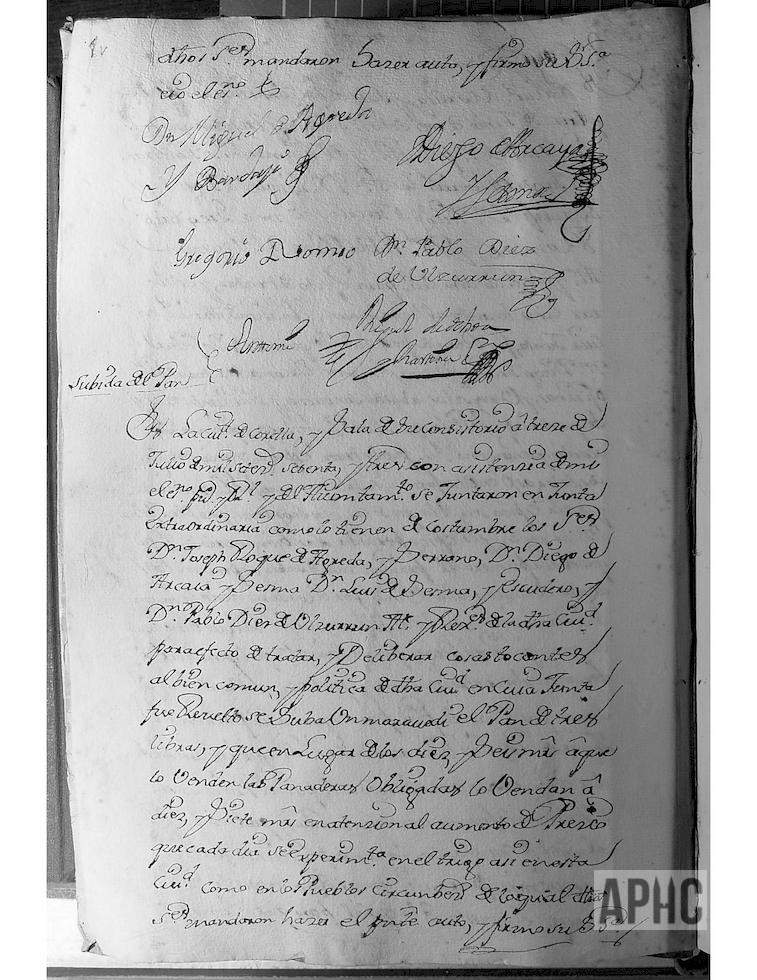 dhos Sres. mandaron hazer auto, y firmo su Sria.
con el esno.
Dn. Miguel de Agreda
y Bardaji
Diego de Arcaya
y Lerma
Gregorio Romeo
Dn. Pablo Diez
de Ulzurrun
Antemi
Miguel
Subida del Pan
En La Ciud. de Corella, y Sala de su consistorio â trese de
Julio de mil Setezs. setenta, y tres con asistenzia de mi
el esno. ppco. y del Aiuntamto. se Juntaron en Junta
extraordinaria como lo tienen de costumbre los Sres.
Dn. Joseph Roque de Agreda, y Serrano, Dn. Diego de
Arcaia y Lerma Dn. Luis de Sesma, y escudero, y
Dn. Pablo Diez de Ulzurrun Alc. y Rexs. de la dha Ciud.
para efecto de tratar, y Deliberar cosas tocantes
al bien comun, y politica de dha Ciud. en cuia Junta
fue Resuelto se Suba Un maravedi el Pan de tres
libras, y que en Lugar de los diez, y seis mrs. â que
lo Venden las Panaderas Obligadas lo Vendan â
diez, y siete mrs. en atenzion al aumento de Prezio
que cada dia se experimta. en el trigo asi en esta
Ciud. como en los Pueblos circunbezs. de lo qual dhos
Sres. mandaron hazer el prnte auto, y firmo su Sria.
APHC